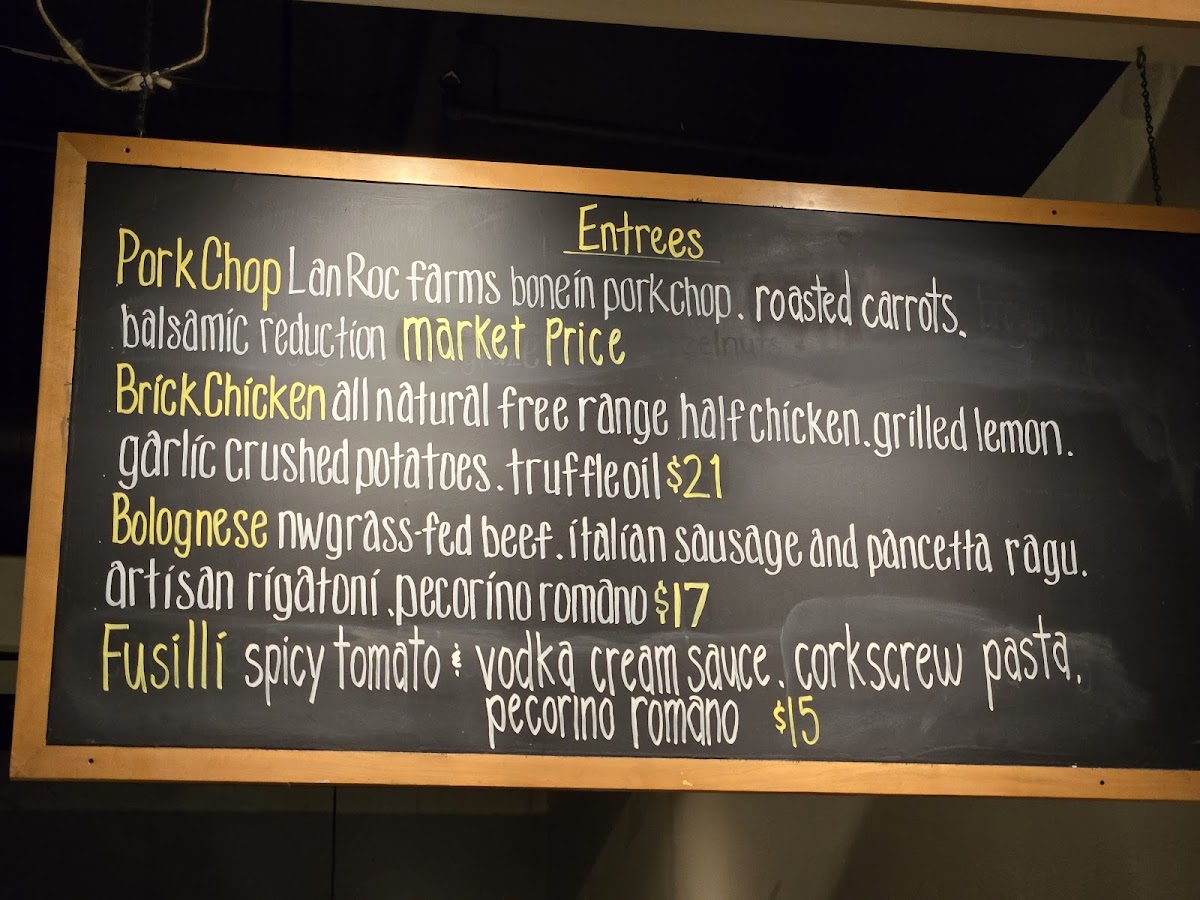 Entrees
Pork Chop LanRoc farms bone in pork chop. roasted carrots.
balsamic reduction market Price
Brick Chicken all natural free range half chicken. grilled lemon.
garlic crushed potatoes. truffle oil $21
Bolognese nw grass-fed beef. italian sausage and pancetta ragu.
artisan rigatoni. pecorino romano $17
Fusilli spicy tomato & vodka cream sauce. corkscrew pasta.
pecorino romano $15